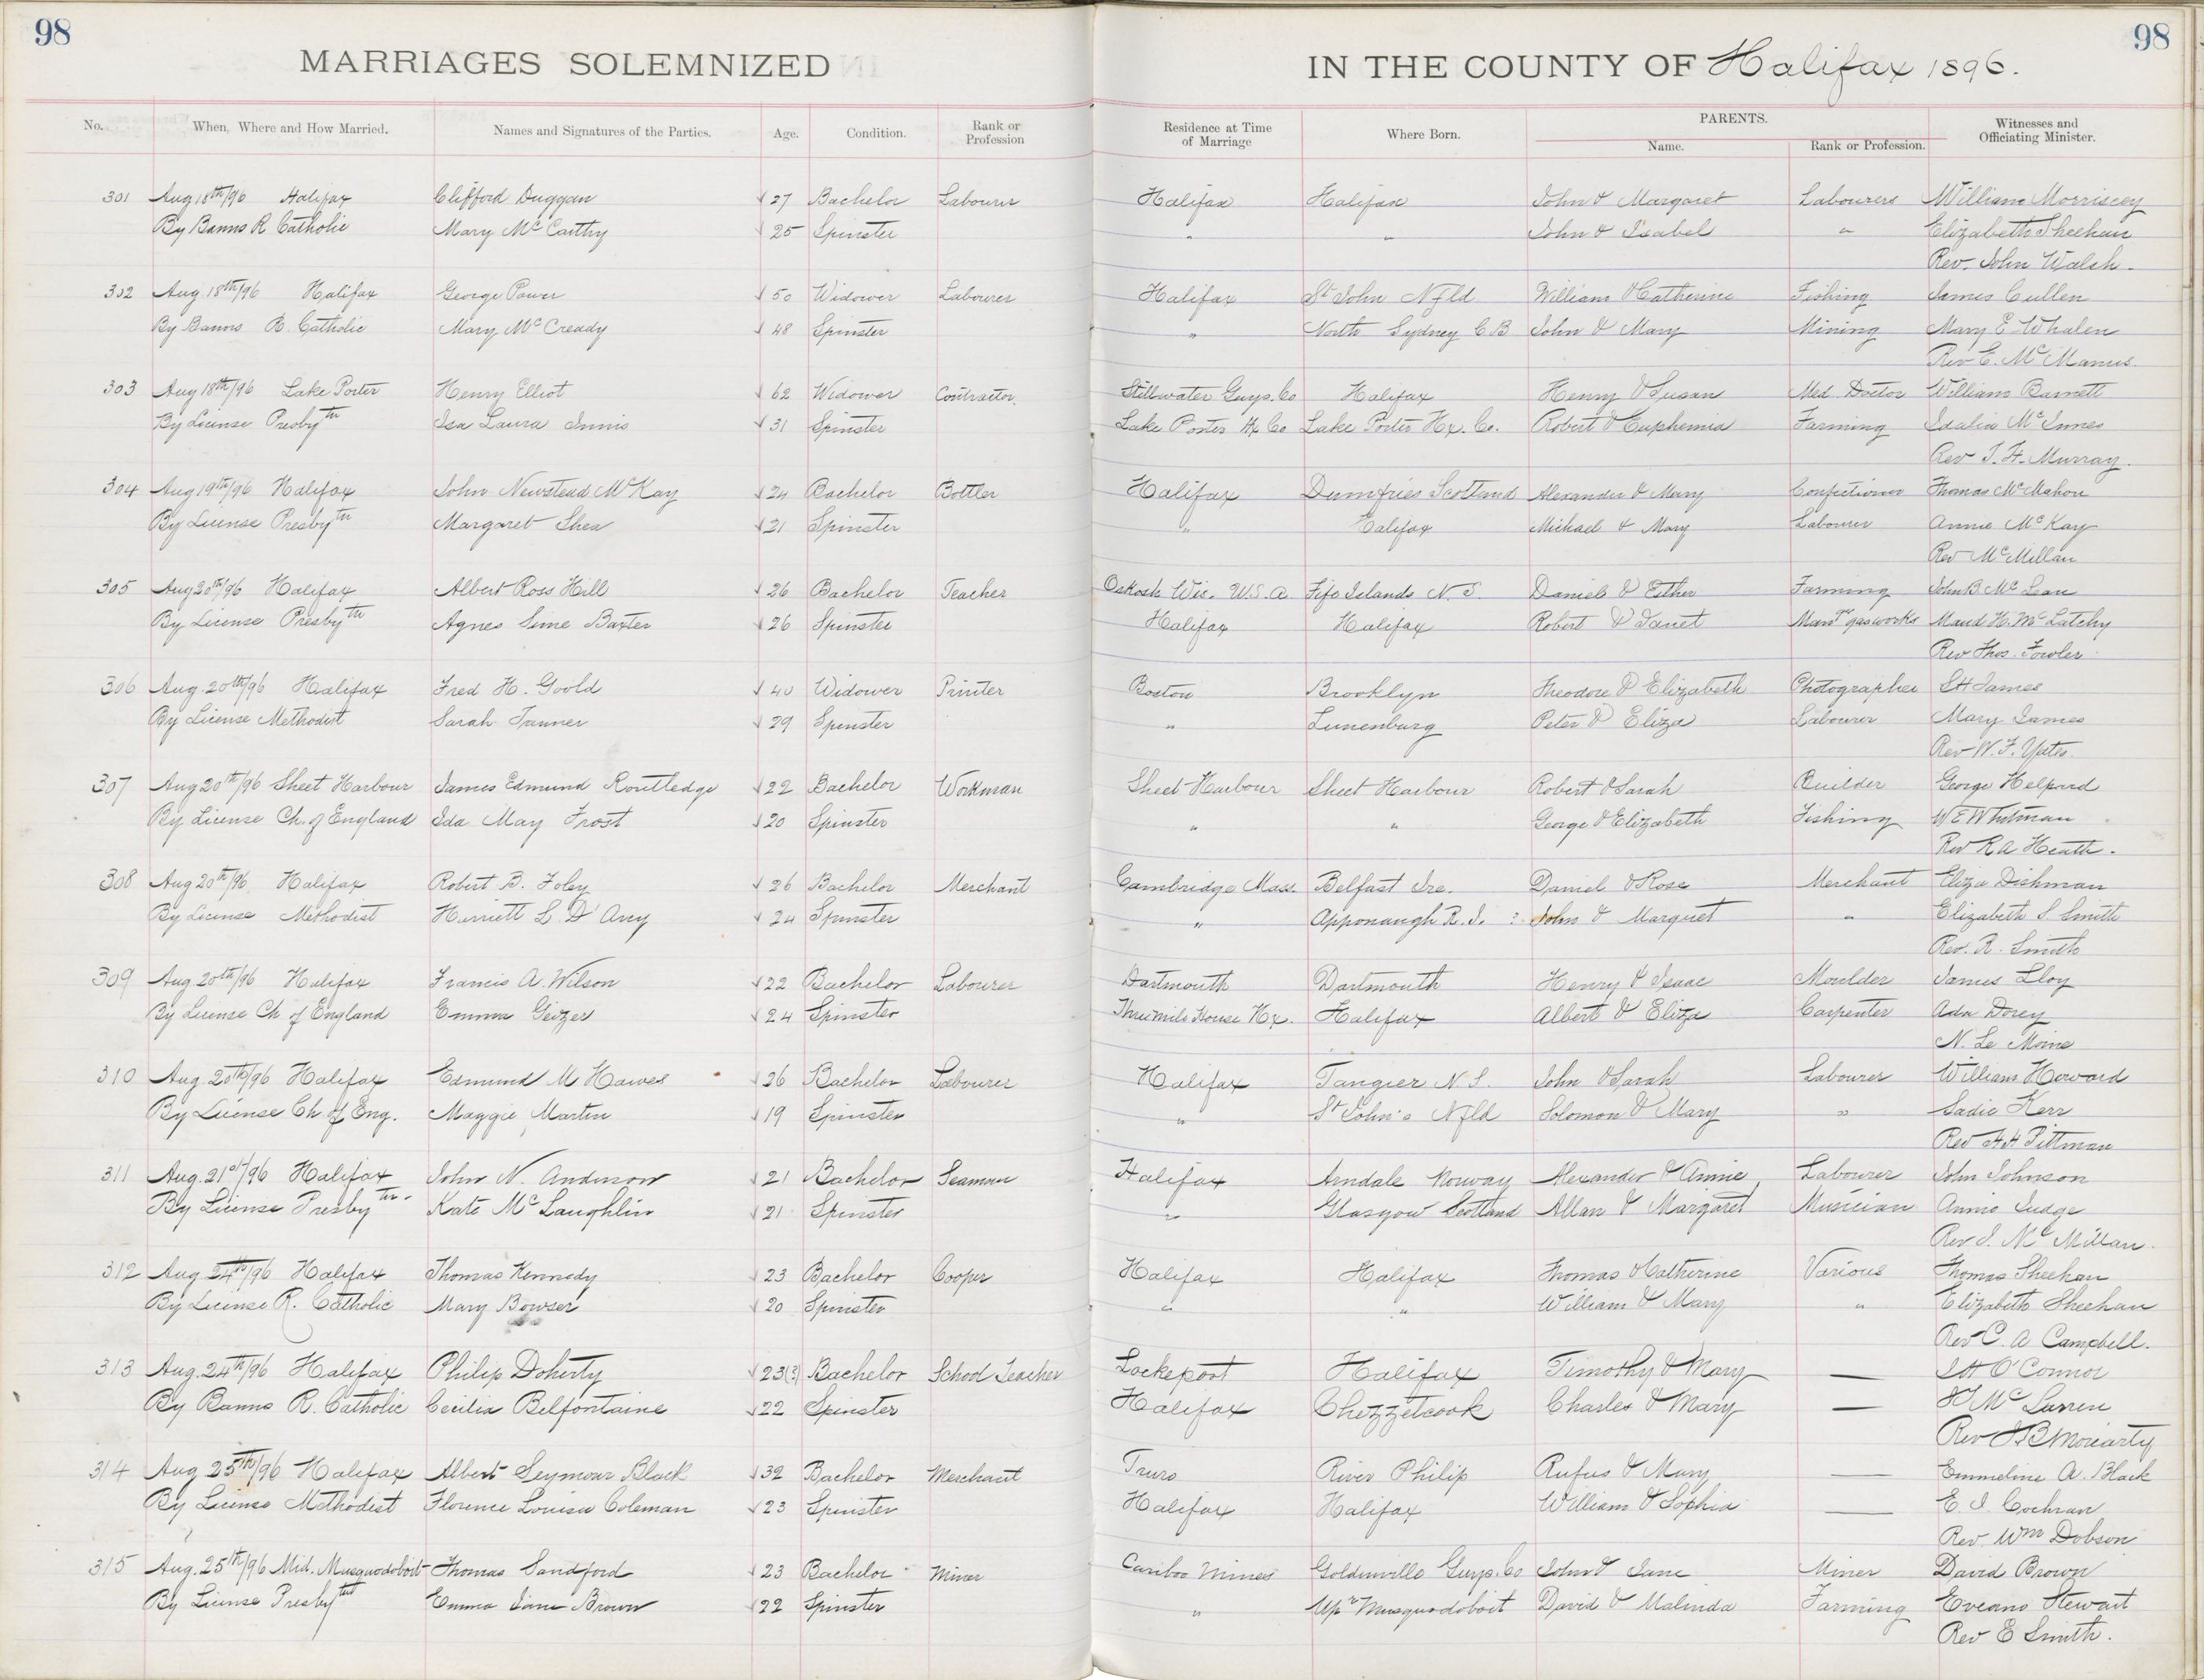 98
98
MARRIAGES SOLEMNIZED
IN THE COUNTY OF Halifax 1896.
No. When, Where and How Married. Names and Signatures of the Parties. Age. Condition. Rank or Profession Residence at Time of Marriage Where Born. PARENTS. Name. Rank or Profession. Witnesses and Officiating Minister.
301 Aug 18th/96 Halifax Clifford Duggan 27 Bachelor Labourer Halifax Halifax John & Margaret Labourers William Morriscey
By Banns R Catholic Mary McCarthy 25 Spinster " " John & Isabel " Elizabeth Sheehan
Rev. John Walsh.
302 Aug. 18th/96 Halifax George Power 50 Widower Labourer Halifax St John Nfld William & Catherine Fishing James Cullen
By Banns R. Catholic Mary McCready 48 Spinster " North Sydney C.B. John & Mary Mining Mary E Whalen
Rev E. McManus.
303 Aug 18th/96 Lake Porter Henry Elliot 62 Widower Contractor. Stillwater Guys. Co Halifax Henry & Susan Med. Doctor William Barnett
By License Presbytn Isa Laura Innis 31 Spinster Lake Porter Hx Co Lake Porter Hx. Co. Robert & Euphemia Farming Idalia McInnes
Rev T. H. Murray.
304 Aug 19th/96 Halifax John Newstead McKay 24 Bachelor Bottler Halifax Dumfries Scotland Alexander & Mary Confectioner Thomas McMahon
By License Presbytn Margaret Shea 21 Spinster " Halifax Michael & Mary Labourer Annie McKay
Rev McMillan
305 Aug 20th/96 Halifax Albert Ross Hill 26 Bachelor Teacher Oskosh Wis. U.S.A. Fife Islands N.S. Daniel & Esther Farming John B. McLean
By License Presbytn Agnes Sime Baxter 26 Spinster Halifax Halifax Robert & Janet Mangr gasworks Maud H. McLatchy
Rev Thos. Fowler.
306 Aug. 20th/96 Halifax Fred H. Goold 40 Widower Printer Boston Brooklyn Theodore & Elizabeth Photographer S H James
By License Methodist Sarah Tanner 29 Spinster " Lunenburg Peter & Eliza Labourer Mary James
Rev W. F. Yates.
307 Aug 20th/96 Sheet Harbour James Edmund Routledge 22 Bachelor Workman Sheet Harbour Sheet Harbour Robert & Sarah Builder George
By License Ch. of England Ida May Frost 20 Spinster " " George & Elizabeth Fishing W E Whitman
Rev R A Heath.
308 Aug 20th/96. Halifax Robert B. Foley 26 Bachelor Merchant Cambridge Mass. Belfast Ire. Daniel & Rose Merchant Eliza Dishman
By License Methodist Harriett L. D'Any 24 Spinster " Apponaugh R.I. ? John & Marguet " Elizabeth S. Smith
Rev. R. Smith
309 Aug. 20th/96 Halifax Francis A. Wilson 22 Bachelor Labourer Dartmouth Dartmouth Henry & Isaac Moulder James Lloy
By License Ch of England Emma Geizer 24 Spinster Three mile House Hx. Halifax Albert & Eliza Carpenter Ada Dorey
N. Le Moine
310 Aug. 20th/96 Halifax Edmund M Hawes 26 Bachelor Labourer Halifax Tangier N.S. John & Sarah Labourer William Howard
By License Ch. of Eng. Maggie Martin 19 Spinster " St John's Nfld Solomon & Mary " Sadie Kerr
Rev H H Pittman
311 Aug. 21st/96 Halifax John N. Anderson 21 Bachelor Seaman Halifax Arndale Norway Alexander & Annie Labourer John Johnson
By License Presbytn. Kate McLaughlin 21 Spinster " Glasgow Scotland Allan & Margaret Musician Annie Judge
Rev J. McMillan.
312 Aug 24th/96 Halifax Thomas Kennedy 23 Bachelor Cooper Halifax Halifax Thomas & Catherine Various Thomas Sheehan
By License R. Catholic Mary Bowser 20 Spinster " " William & Mary " Elizabeth Sheehan
Rev C. A Campbell.
313 Aug. 24th/96 Halifax Philip Doherty 23(?) Bachelor School Teacher Lockeport Halifax Timothy & Mary — J H O'Connor
By Banns R. Catholic Cecilia Belfontaine 22 Spinster Halifax Chezzetcook Charles & Mary —
Rev J B Moriarty
314 Aug 25th/96 Halifax Albert Seymour Black 32 Bachelor Merchant Truro River Philip Rufus & Mary — Emmeline A. Black
By License Methodist Florence Louisa Coleman 23 Spinster Halifax Halifax William & Sophia — E J Cochran
Rev. Wm Dobson
315 Aug. 25th/96 Mid. Musquodoboit Thomas Sandford 23 Bachelor Miner Cariboo Mines Goldenville Guys. Co John & Jane Miner David Brown
By License Presbytn Emma Jane Brown 22 Spinster " Upr Musquodoboit David & Malinda Farming Stewart
Rev E Smith.